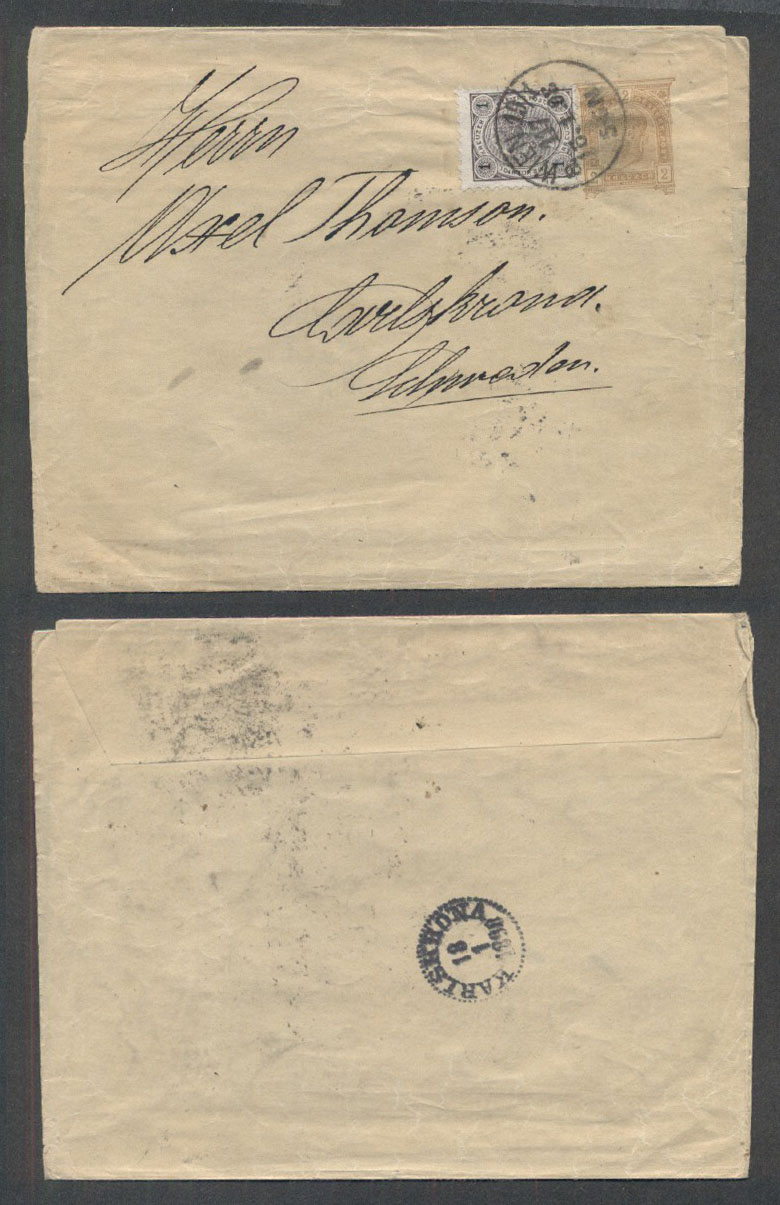 Herrn
Axel Thomson.
Carlskrona.
Schweden.
1
1
1
KREUZER
WIEN
2
2
2
KARLSKRONA
18
1